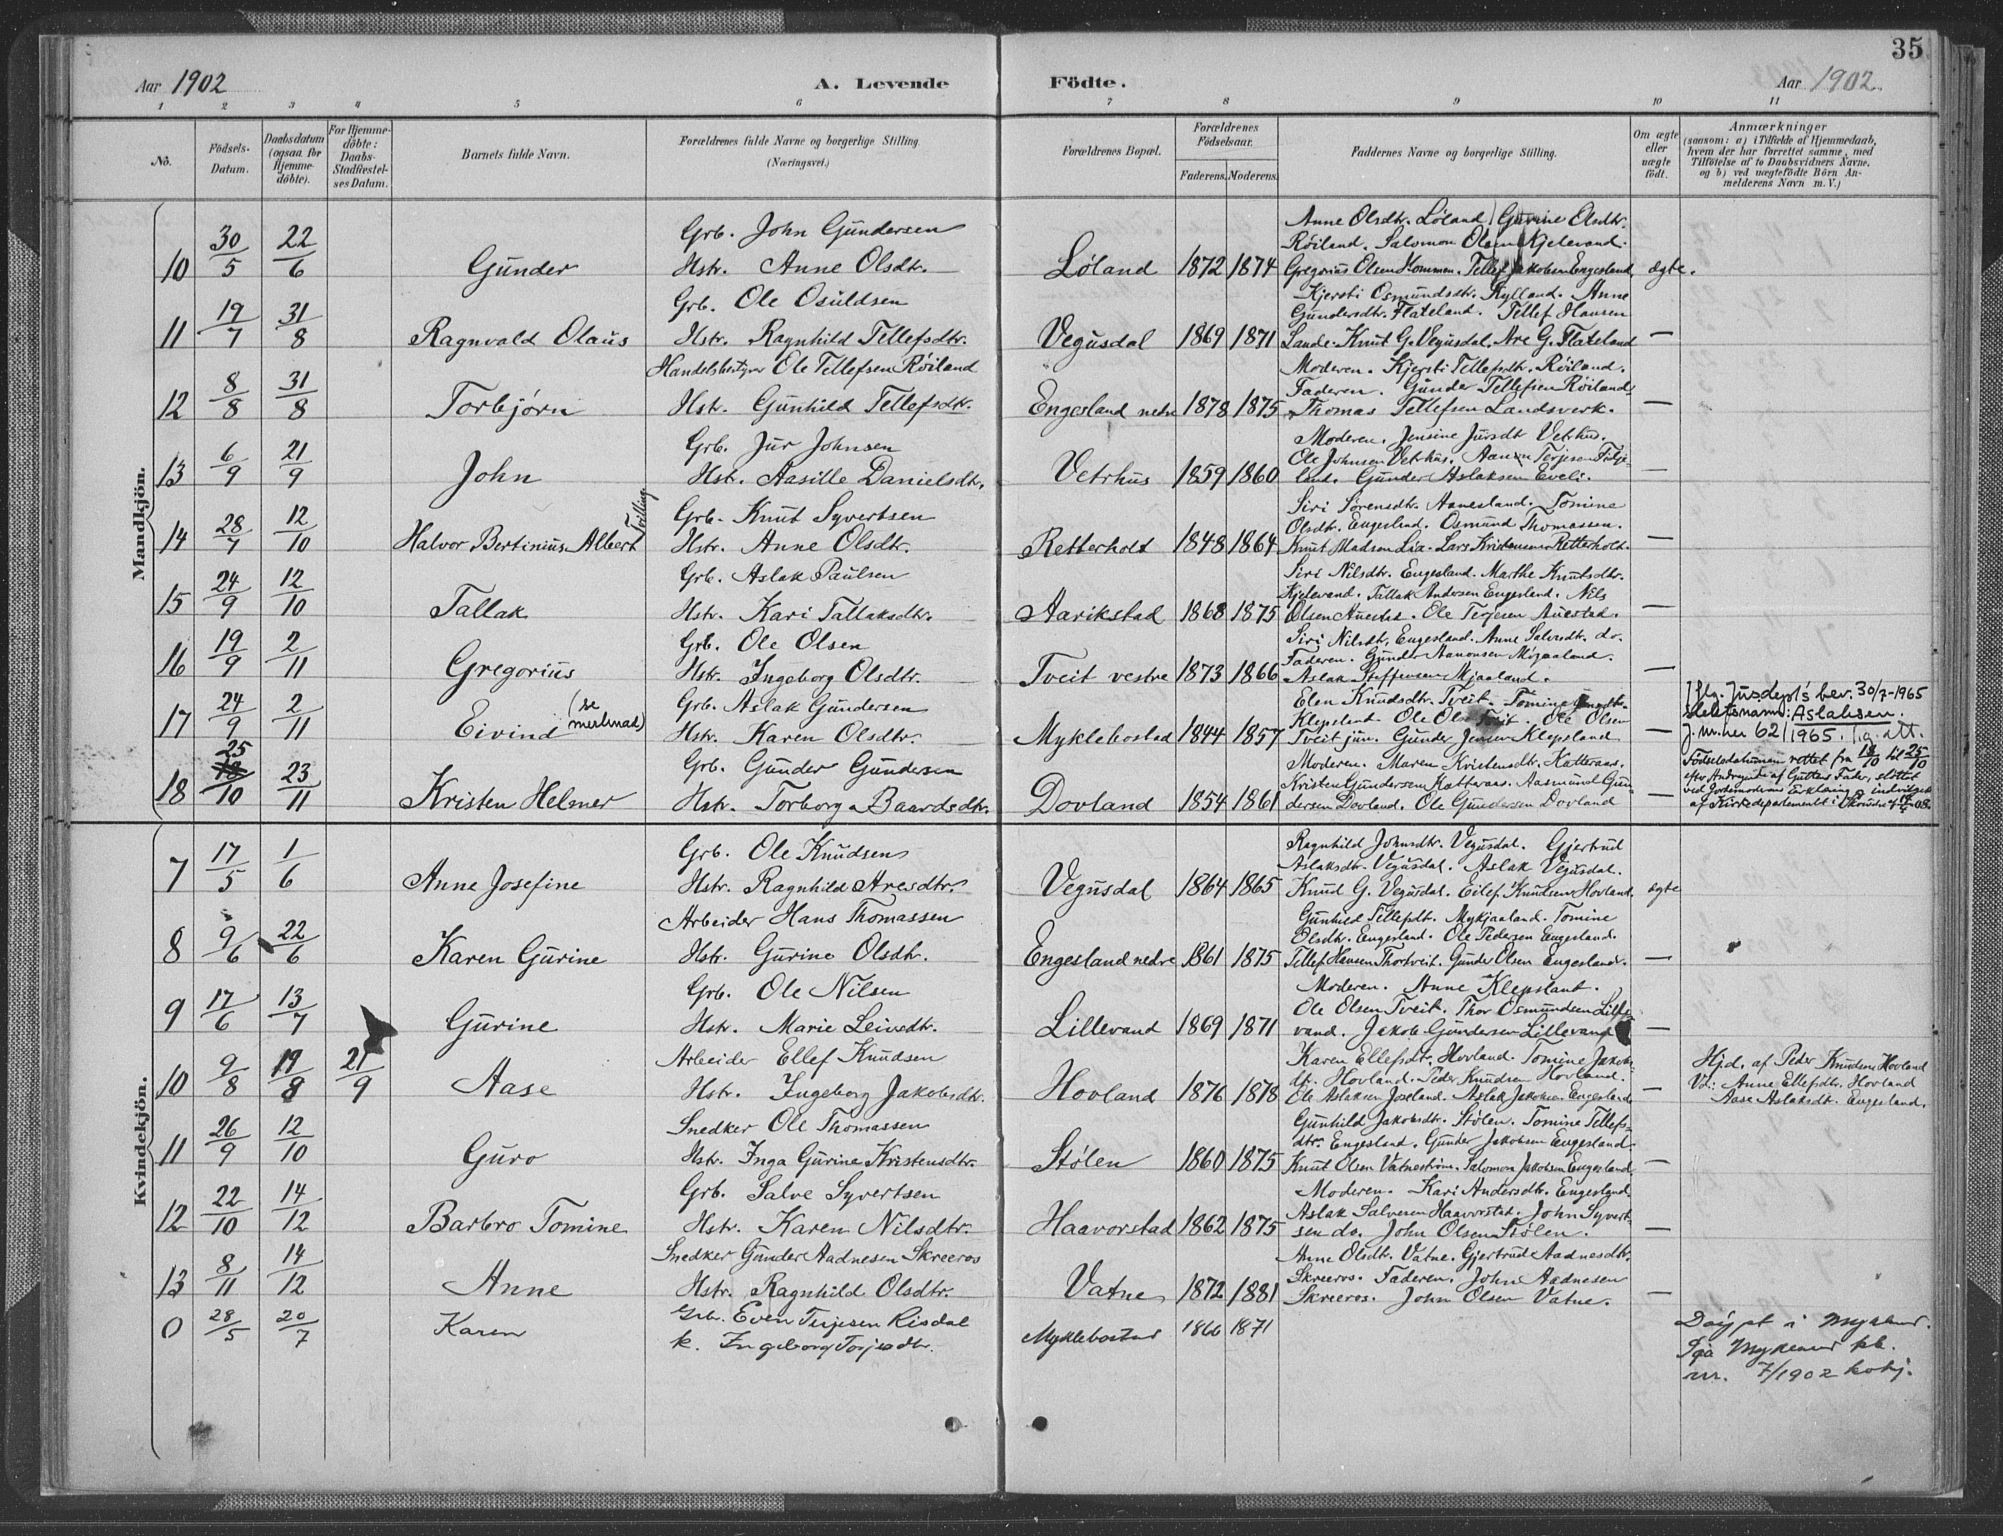 35
Aar 1902 A. Levende Födte. Aar 1902.
1 2 3 4 5 6 7 8 9 10 11
No. Födsels-Datum. Daabsdatum (ogsaa for Hjemme-döbte). For Hjemme-döbte: Daabs-Stadfæstel-ses Datum. Barnets fulde Navn. Forældrenes fulde Navne og borgerlige Stilling. (Næringsvei.) Forældrenes Bopæl. Forældrenes Födselsaar. Faderens. Moderens. Faddernes Navne og borgerlige Stilling. Om ægte eller uægte födt. Anmærkninger (saasom: a) i Tilfælde af Hjemmedaab, hvem der har forrettet samme, med Tilföielse af to Daabsvidners Navne, og b) ved uægtefödte Börn An-melderens Navn m. V.)
Mandkjön.
Grb. John Gundersen Anne Olsdtr. Løland. Gurine Olsdtr.
Røiland. Salomon Olsen Kjelevand.
10 30/5 22/6 Gunder Hstr. Anne Olsdtr. Løland 1872 1874 Gregorius Olsen Hommen. Tellef Jakobsen Engesland ægte.
Grb. Ole Osuldsen Kjersti Osmundsdtr. Rylland. Anne
Gundersdtr. Flateland. Tellef Hansen
11 19/7 31/8 Ragnvald Olaus Hstr. Ragnhild Tellefsdtr. Vegusdal 1869 1871 Lande. Knut G. Vegusdal. Are G. Flateland —
Handelsbestyrer Ole Tellefsen Røiland Moderen. Kjersti Tellefsdtr. Røiland.
Faderen. Gunder Tellefsen Røiland.
12 8/8 31/8 Torbjørn Hstr. Gunhild Tellefsdtr. Engesland nedre 1878 1875 Thomas Tellefsen Landsverk. —
Grb. Jur Johnsen Moderen. Jensine Jursdt. Vetrhus.
Ole Johnsen Vetrhus. Terjesen
13 6/9 21/9 John Hstr. Aasille Danielsdtr. Vetrhus 1859 1860 land. Gunder Aslaksen Eveli. —
Grb. Knut Syvertsen Siri Sørensdtr. Aanesland. Tomine
Olsdtr. Engesland. Osmund Thomassen.
14 28/7 12/10 Halvor Bertinius Albert Tvilling Hstr. Anne Olsdtr. Retterholt 1848 1864 Knut Madsen Lia. Lars Kristensen Retterholt. —
Grb. Aslak Paulsen Siri Nilsdtr. Engesland. Marthe Knutsdtr.
Kjelevand. Tellak Andersen Engesland. Nils
15 24/9 12/10 Tallak Hstr. Kari Tallaksdtr. Aarikstad 1868 1875 Olsen Auestad. Ole Terjesen Auestad. —
Grb. Ole Olsen Siri Nilsdt. Engesland. Anne Salvesdtr. do.
Faderen. Gunder Aanonsen Mjaaland.
16 19/9 2/11 Gregorius Hstr. Ingeborg Olsdtr. Tveit vestre 1873 1866 Aslak Steffensen Mjaaland. —
Grb. Aslak Gundersen Elen Knudsdtr. Tveit. Tomine
Klepsland. Ole Olsen Tveit. Ole Olsen
17 24/9 2/11 Eivind (se merknad) Hstr. Karen Olsdtr. Myklebostad 1844 1857 Tveit jun. Gunder Jensen Klepsland —
Iflg. Jusdept's bev. 30/7-1965
slektsnamn: Aslaksen.
J.nr. her 62/1965. T.g. att.
Grb. Gunder Gundersen Moderen. Maren Kristensdtr. Katteraas.
Kristen Gundersen Katteraas. Aasmund Gun-
18 25/10 23/11 Kristen Helmer Hstr. Torborg Baardsdtr. Dovland 1854 1861 dersen Dovland. Ole Gundersen Dovland —
Fødselsdatumen rettet fra 18/10 til 25/10
efter Andragende af Guttens Fader, støttet
ved Jordemoderens Erklæring og indvilget
af Kirkedepartementet i Skrivelse
Kvindekjön.
Grb. Ole Knudsen Ragnhild Johnsdtr. Vegusdal. Gjertrud
Aslaksdtr. Vegusdal. Aslak Vegusdal.
7 17/5 1/6 Anne Josefine Hstr. Ragnhild Aresdtr. Vegusdal 1864 1865 Knud G. Vegusdal. Eilef Knudsen Hovland. ægte
Arbeider Hans Thomassen Gunhild Tellefsdt. Mykjaaland. Tomine
Olsdtr. Engesland. Ole Pedersen Engesland.
8 9/6 22/6 Karen Gurine Hstr. Gurine Olsdtr. Engesland nedre 1861 1875 Tellef Hansen Thortveit. Gunder Olsen Engesland. —
Grb. Ole Nilsen Moderen. Anne Klepsland.
Ole Olsen Tveit. Thor Osmundsen Lille-
9 17/6 13/7 Gurine Hstr. Marie Leivsdtr. Lillevand 1869 1871 vand. Jakob Gundersen Lillevand —
Arbeider Ellef Knudsen Karen Ellefsdt. Hovland. Tomine Jakobs-
dt. Hovland. Peder Knudsen Hovland.
10 9/8 19/8 21/9 Aase Hstr. Ingeborg Jakobsdtr. Hovland 1876 1878 Ole Aslaksen Joreland. Aslak Jakobsen Engesland —
Hjd. af Peder Knudsen Hovland
Vd: Anne Ellefsdtr. Hovland
Aase Aslaksdt. Engesland.
Snedker Ole Thomassen Gunhild Jakobsdt. Stølen. Tomine Tellefs-
dtr. Engesland. Gunder Jakobsen Engesland.
11 26/9 12/10 Guro Hstr. Inga Gurine Kristensdtr. Stølen 1860 1875 Knut Olsen Vatnestrøm. Salomon Jakobsen Engesland —
Grb. Salve Syvertsen Moderen. Kari Andersdtr. Engesland.
Aslak Salvesen Haavorstad. John Syvert-
12 22/10 14/12 Barbro Tomine Hstr. Karen Nilsdtr. Haavorstad 1862 1875 sen do. John Olsen Stølen. —
Snedker Gunder Aadnesen Skreeros Anne Olsdt. Vatne. Gjertrud Aadnesdtr.
Skreeros. Faderen. John Aadnesen
13 8/11 14/12 Anne Hstr. Ragnhild Olsdtr. Vatne 1872 1881 Skreeros. John Olsen Vatne. —
0 28/5 20/7 Karen Grb. Even Terjesen Risdal Myklebostad 1866 1871
k. Ingeborg Torjesdtr.
Døypt i Mykland.
Sjå Mykland kb.
nr. 7/1902 kvkj.